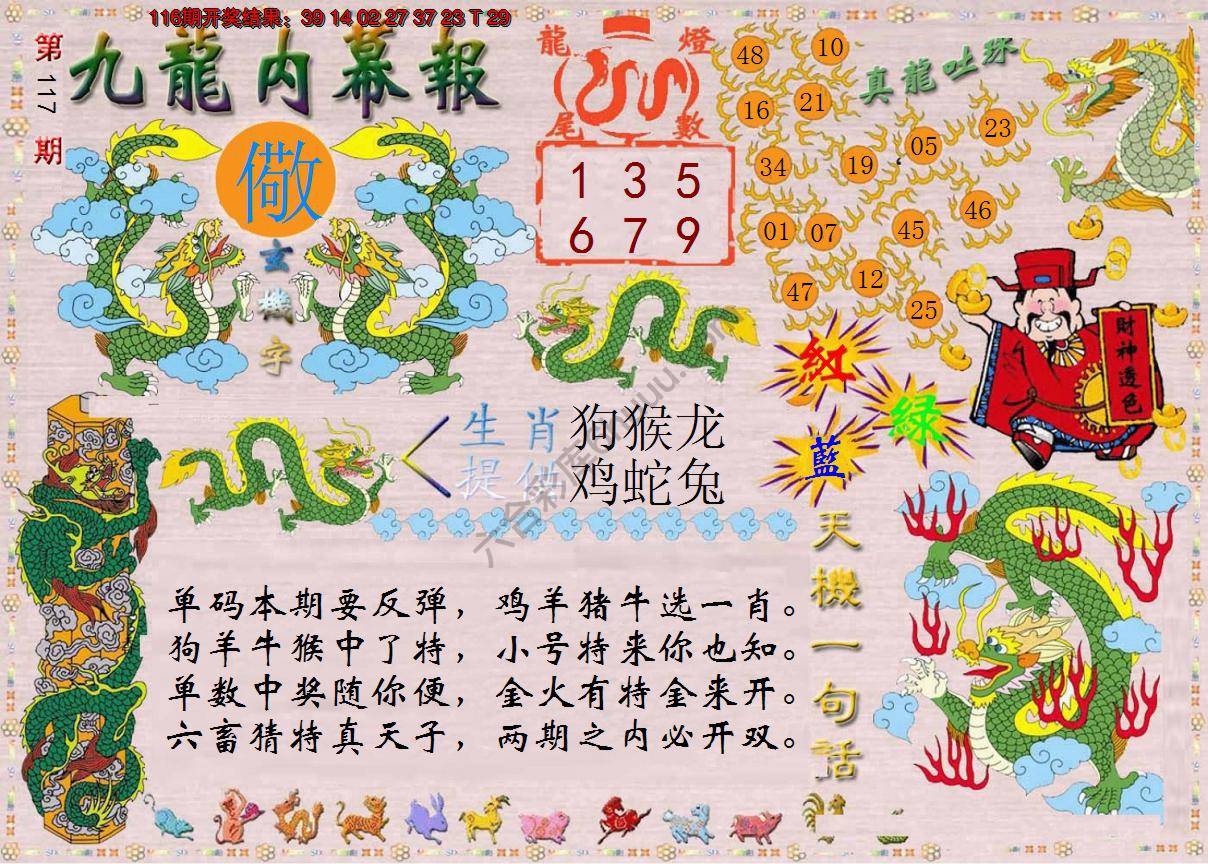 116期开奖结果：39 14 02 27 37 23 T 29
第117期
九龍内幕報
儆
玄機字
龍燈
尾數
1 3 5
6 7 9
真龍吐珠
48
10
16
21
34
19
05
23
01
07
45
46
47
12
25
財神透色
紅
綠
藍
生肖
提供
狗猴龙
鸡蛇兔
天機一句話
单码本期要反弹，鸡羊猪牛选一肖。
狗羊牛猴中了特，小号特来你也知。
单数中奖随你便，金火有特金来开。
六畜猜特真天子，两期之内必开双。